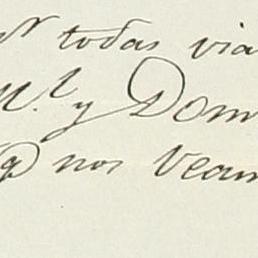 pr todas via
M.l y Dom
q nos Veam